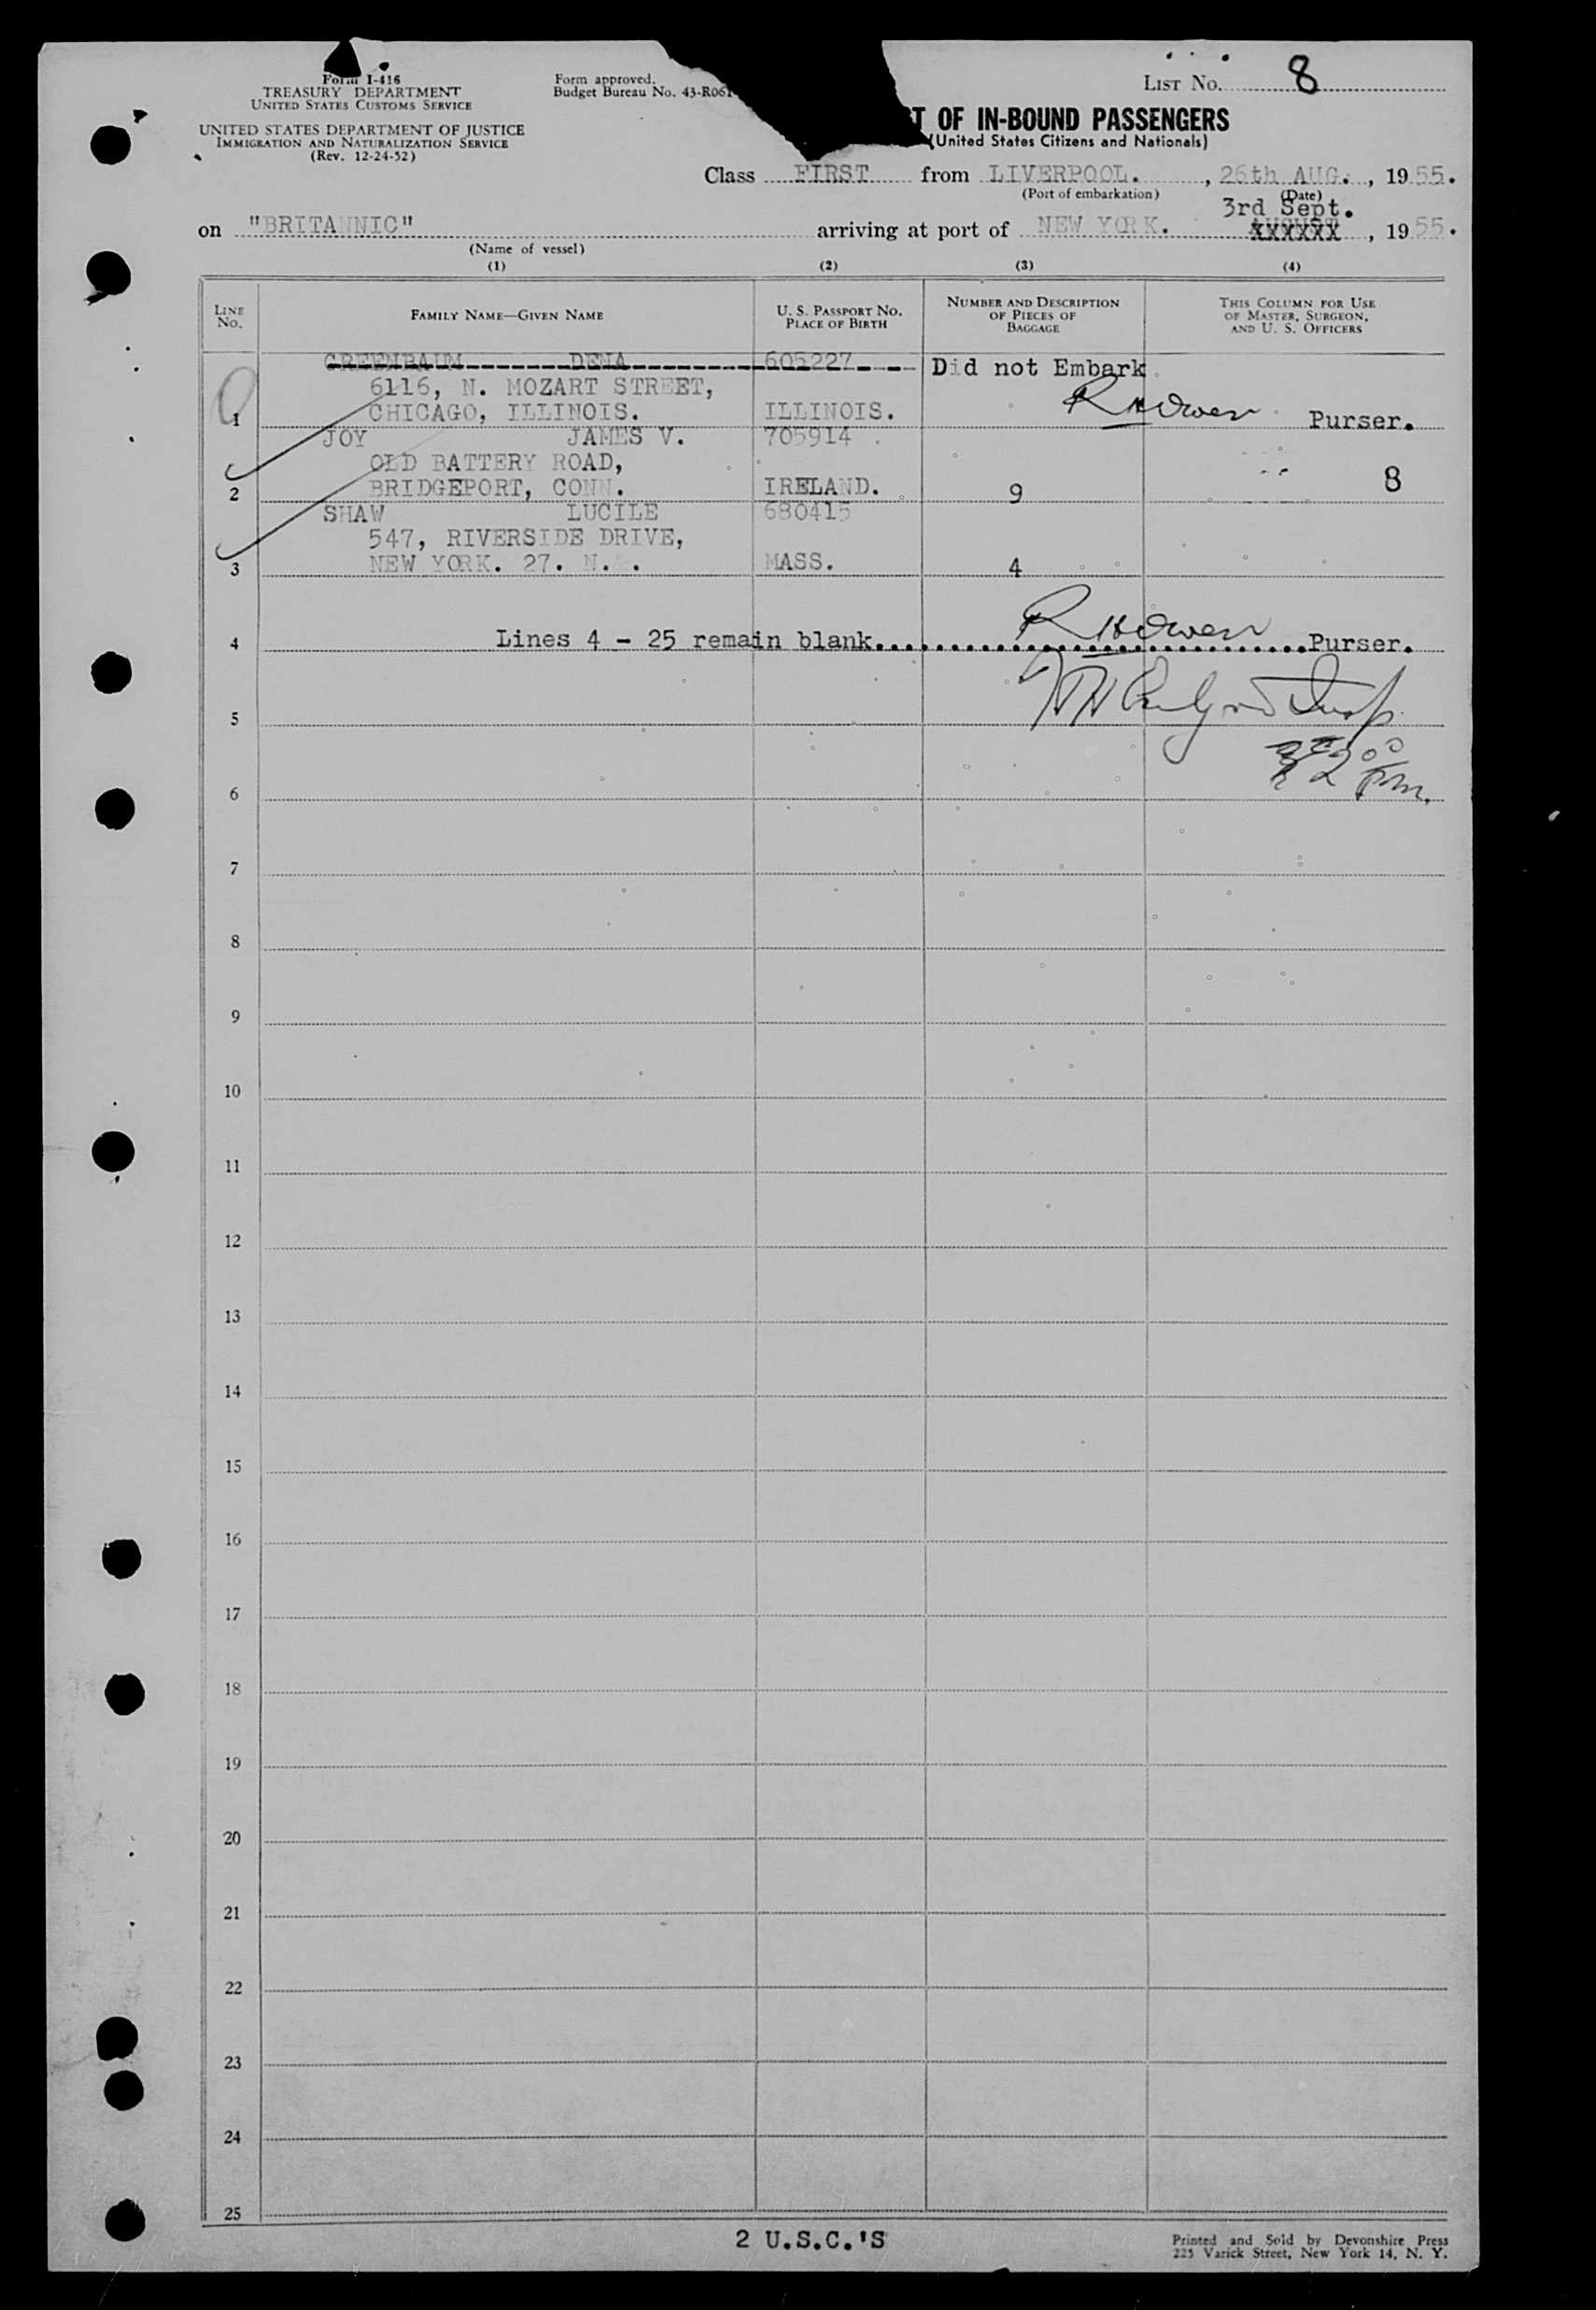 Form I-416
TREASURY DEPARTMENT
UNITED STATES CUSTOMS SERVICE
UNITED STATES DEPARTMENT OF JUSTICE
IMMIGRATION AND NATURALIZATION SERVICE
(Rev. 12-24-52)
Form approved.
Budget Bureau No. 43-R061
LIST No. 8
T OF IN-BOUND PASSENGERS
(United States Citizens and Nationals)
Class FIRST from LIVERPOOL. , 26th AUG. , 1955.
(Port of embarkation) (Date)
3rd Sept.
on "BRITANNIC" arriving at port of NEW YORK. XXXXXX , 1955.
(Name of vessel)
(1) (2) (3) (4)
LINE No. FAMILY NAME—GIVEN NAME U. S. PASSPORT NO. PLACE OF BIRTH NUMBER AND DESCRIPTION OF PIECES OF BAGGAGE THIS COLUMN FOR USE OF MASTER, SURGEON, AND U. S. OFFICERS
GREENBAUM DENA 605227 Did not Embark.
6116, N. MOZART STREET,
1 CHICAGO, ILLINOIS. ILLINOIS. RHOwen Purser.
JOY JAMES V. 705914
OLD BATTERY ROAD,
2 BRIDGEPORT, CONN. IRELAND. 9 8
SHAW LUCILE 680415
547, RIVERSIDE DRIVE,
3 NEW YORK. 27. N. . MASS. 4
4 Lines 4 - 25 remain blank. RHOwen Purser.
5
6 2 00 pm.
7
8
9
10
11
12
13
14
15
16
17
18
19
20
21
22
23
24
25
2 U.S.C.'S
Printed and Sold by Devonshire Press
225 Varick Street, New York 14, N. Y.